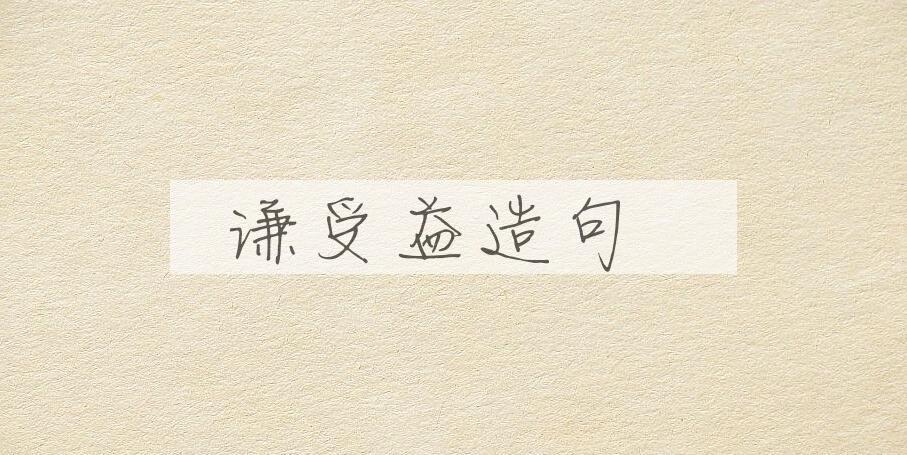 谦受益造句